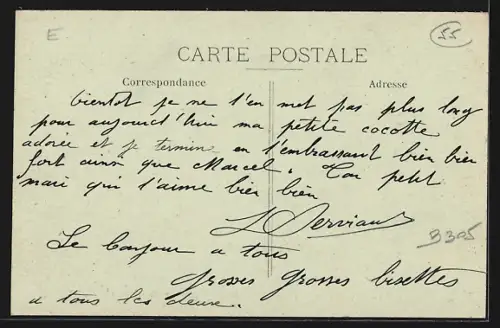 E
55
CARTE POSTALE
Correspondance
Adresse
bientot je ne t'en met pas plus long
pour aujourd'hui ma petite cocotte
adorée et je termine en t'embrassant bien bien
fort ainsi que Marcel. Ton petit
mari qui t'aime bien bien
L Serviant
Le bonjour a tous
grosses grosses bisettes
a tous les deux.
B305